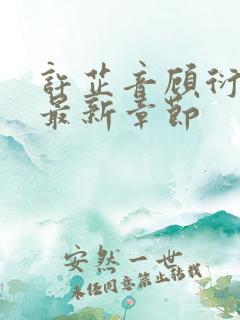 許芷音顾衍
最新章节
安然一世
未经同意禁止转载